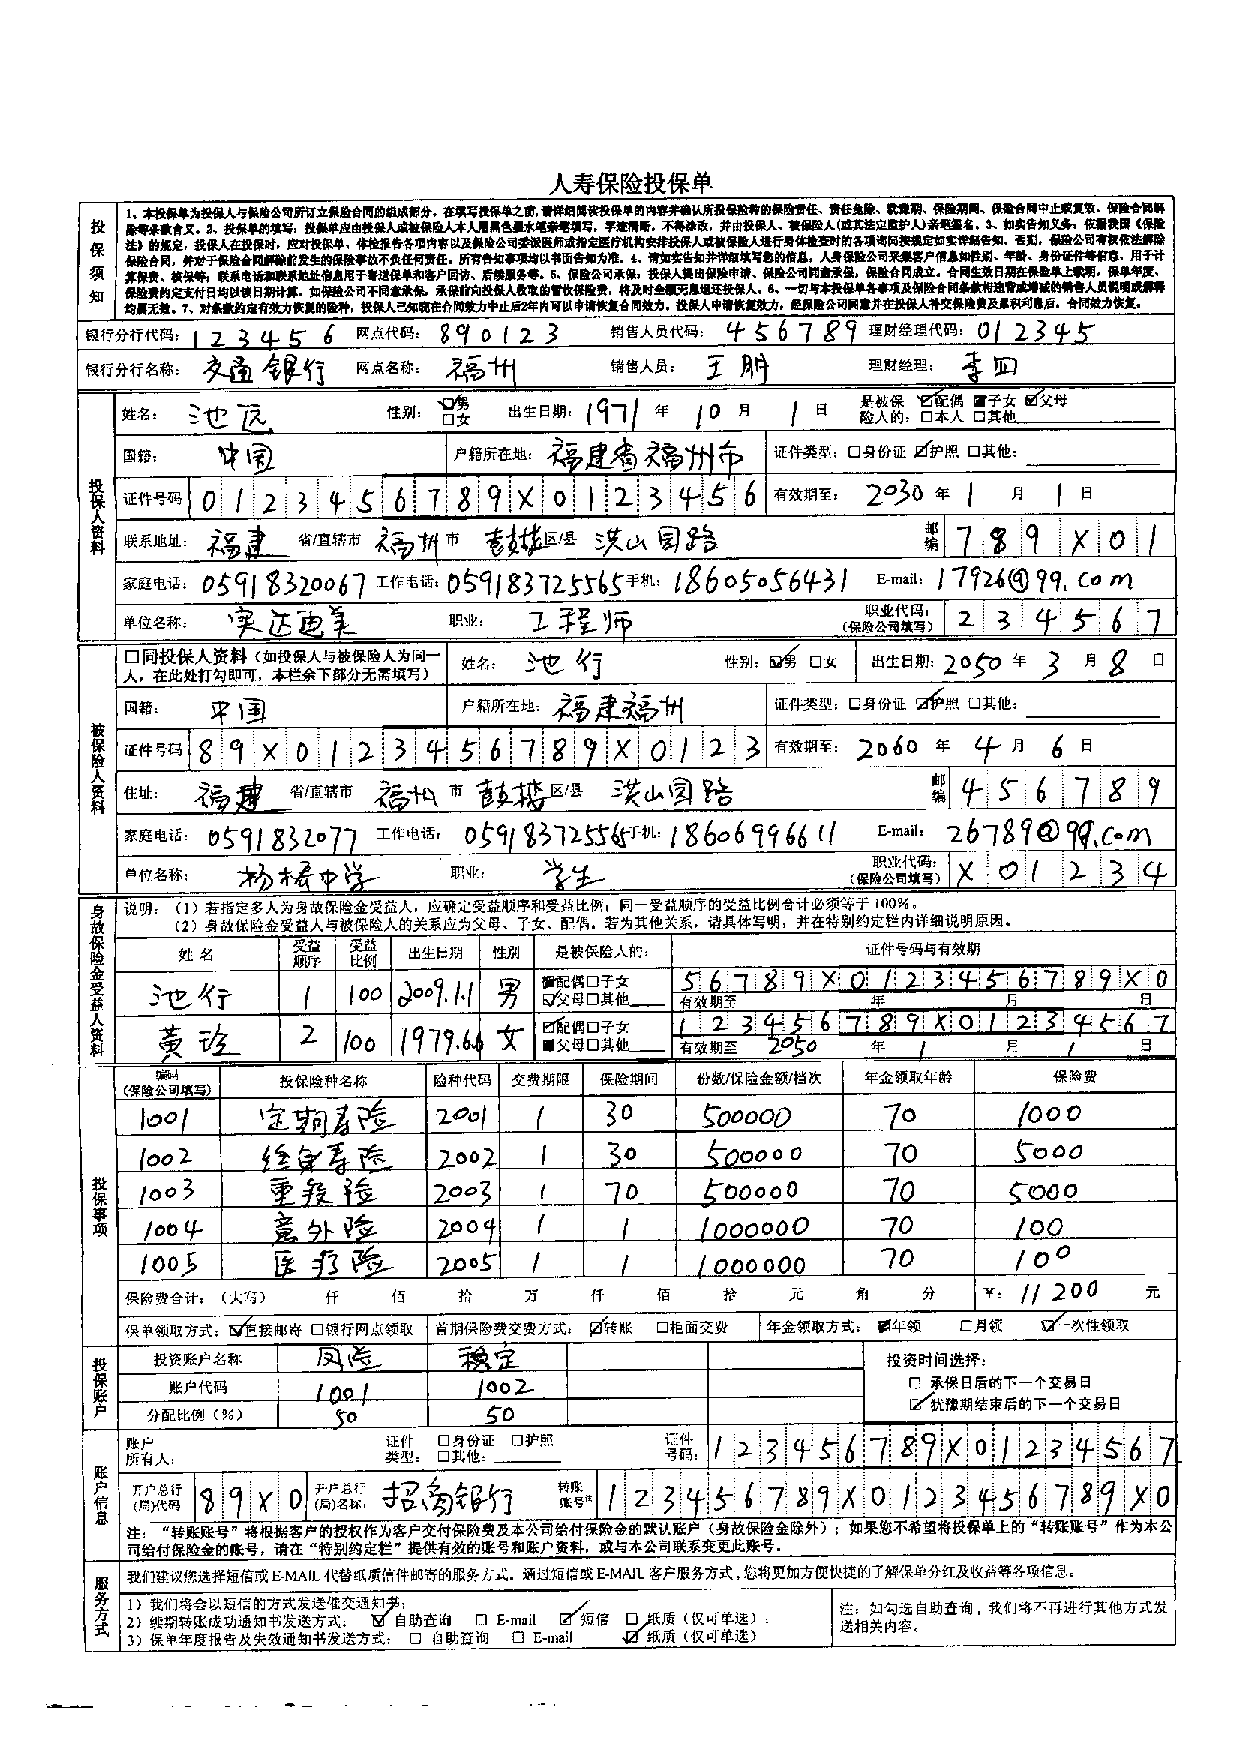 人寿保险投保单
投保须知
1、本投保单为投保人与保险公司所订立保险合同的组成部分，在填写投保单之前，请详细阅读投保单的内容并确认所投保险种的保险责任、责任免除、犹豫期、保险期间、保险合同中止或复效、保险合同解
除等条款含义。2、投保单的填写：投保单应由投保人或被保险人本人用黑色墨水笔亲笔填写，字迹清晰，不得涂改，并由投保人、被保险人（或其法定监护人）亲笔签名。3、如实告知义务，依据我国《保险
法》的规定，投保人在投保时，应对投保单、体检报告各项内容以及保险公司委派医师或指定医疗机构安排投保人或被保险人进行身体检查时的各项询问按规定如实详细告知。否则，保险公司有权依法解除
保险合同，并对于保险合同解除前发生的保险事故不负任何责任。所有告知事项均以书面告知为准。4、请如实告知并详细填写您的信息，人身保险公司采集客户信息如性别、年龄、身份证件等信息，用于计
算保费、核保等，联系电话和联系地址信息用于寄送保单和客户回访、后续服务等。5、保险公司承保：投保人提出保险申请、保险公司同意承保，保险合同成立。合同生效日期在保险单上载明，保单年度、
保险费约定支付日均以该日期计算。如保险公司不同意承保，承保前向投保人收取的暂收保险费，将及时全额无息退还投保人。6、一切与本投保单各事项及保险合同条款相违背或增减的销售人员说明或解释
均属无效。7、对条款约定有效力恢复的险种，投保人已知晓在合同效力中止后2年内可以申请恢复合同效力，投保人申请恢复效力，经保险公司同意并在投保人补交保险费及累积利息后，合同效力恢复。
银行分行代码：123456 网点代码：890123 销售人员代码：456789 理财经理代码：012345
银行分行名称：交通银行 网点名称：福州 销售人员：王朋 理财经理：李四
投保人资料
姓名：池远 性别：☑男 □女 出生日期：1971 年 10 月 1 日 是被保险人的：☑配偶 ■子女 ☑父母 □本人 □其他
国籍：中国 户籍所在地：福建省福州市 证件类型：□身份证 ☑护照 □其他：
证件号码 0123456789X0123456 有效期至：2030 年 1 月 1 日
联系地址：福建 省/直辖市 福州 市 鼓楼 区/县 洪山园路 邮编 789X01
家庭电话：05918320067 工作电话：059183725565 手机：18605056431 E-mail：17926@99.com
单位名称：实达迪美 职业：工程师 职业代码：（保险公司填写） 234567
被保险人资料
□同投保人资料（如投保人与被保险人为同一人，在此处打勾即可，本栏余下部分无需填写） 姓名：池行 性别：☑男 □女 出生日期：2050 年 3 月 8 日
国籍：中国 户籍所在地：福建福州 证件类型：□身份证 ☑护照 □其他：
证件号码 89X0123456789X0123 有效期至：2060 年 4 月 6 日
住址：福建 省/直辖市 福州 市 鼓楼 区/县 洪山园路 邮编 456789
家庭电话：0591832077 工作电话：059183725565 手机：18606996611 E-mail：26789@99.com
单位名称：杨桥中学 职业：学生 职业代码：（保险公司填写） X01234
身故保险金受益人资料
说明：（1）若指定多人为身故保险金受益人，应确定受益顺序和受益比例；同一受益顺序的受益比例合计必须等于100%。
（2）身故保险金受益人与被保险人的关系应为父母、子女、配偶。若为其他关系，请具体写明；并在特别约定栏内详细说明原因。
姓名 受益顺序 受益比例 出生日期 性别 是被保险人的： 证件号码与有效期
池行 1 100 2009.1.1 男 ■配偶□子女 ☑父母□其他 56789X0123456789X0 有效期至 年 月 日
黄珍 2 100 1979.6.6 女 ☑配偶□子女 ■父母□其他 123456789X01234567 有效期至 2050 年 1 月 1 日
投保事项
编码（保险公司填写） 投保险种名称 险种代码 交费期限 保险期间 份数/保险金额/档次 年金领取年龄 保险费
1001 定期寿险 2001 1 30 500000 70 1000
1002 终身寿险 2002 1 30 500000 70 5000
1003 重疾险 2003 1 70 500000 70 5000
1004 意外险 2004 1 1 1000000 70 100
1005 医疗险 2005 1 1 1000000 70 100
保险费合计：（大写） 仟 佰 拾 万 仟 佰 拾 元 角 分 ¥：11200 元
保单领取方式：☑直接邮寄 □银行网点领取 首期保险费交费方式：☑转账 □柜面交费 年金领取方式：☑年领 □月领 ☑一次性领取
投保账户
投资账户名称 风险 稳定 投资时间选择：
账户代码 1001 1002 □ 承保日后的下一个交易日
分配比例（%） 50 50 ☑ 犹豫期结束后的下一个交易日
账户信息
账户所有人： 证件类型：□身份证 □护照 □其他： 证件号码：123456789X01234567
开户总行(局)代码 89X0 开户总行(局)名称：招商银行 转账账号注 123456789X0123456789X0
注：“转账账号”将根据客户的授权作为客户交付保险费及本公司给付保险金的默认账户（身故保险金除外）；如果您不希望将投保单上的“转账账号”作为本公
司给付保险金的账号，请在“特别约定栏”提供有效的账号和账户资料，或与本公司联系变更此账号。
服务方式
我们建议您选择短信或E-MAIL代替纸质信件邮寄的服务方式。通过短信或E-MAIL客户服务方式，您将更加方便快捷的了解保单分红及收益等各项信息。
1）我们将会以短信的方式发送催交通知书；
2）续期转账成功通知书发送方式：☑ 自助查询 □ E-mail ☑ 短信 □ 纸质（仅可单选）；
3）保单年度报告及失效通知书发送方式：□ 自助查询 □ E-mail ☑ 纸质（仅可单选）
注：如勾选自助查询，我们将不再进行其他方式发
送相关内容。